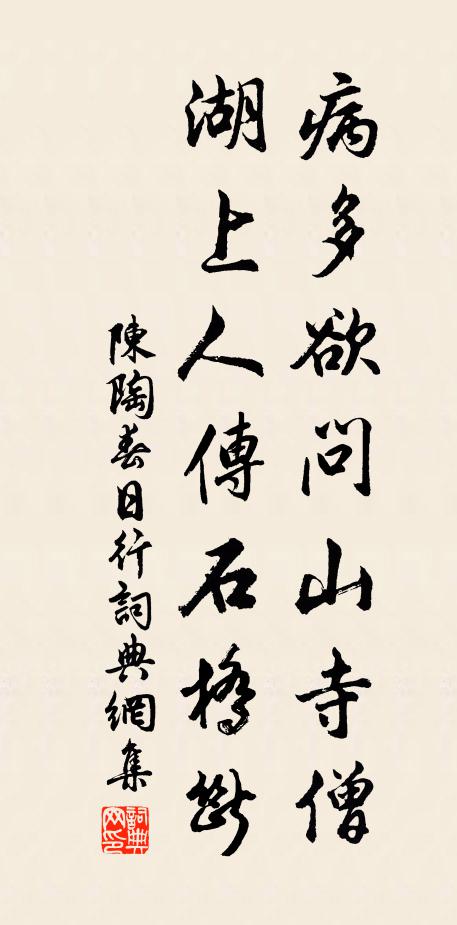 病多欲問山寺僧
湖上人傳石橋斷
陳陶春日行詞典網集
詞典
网印